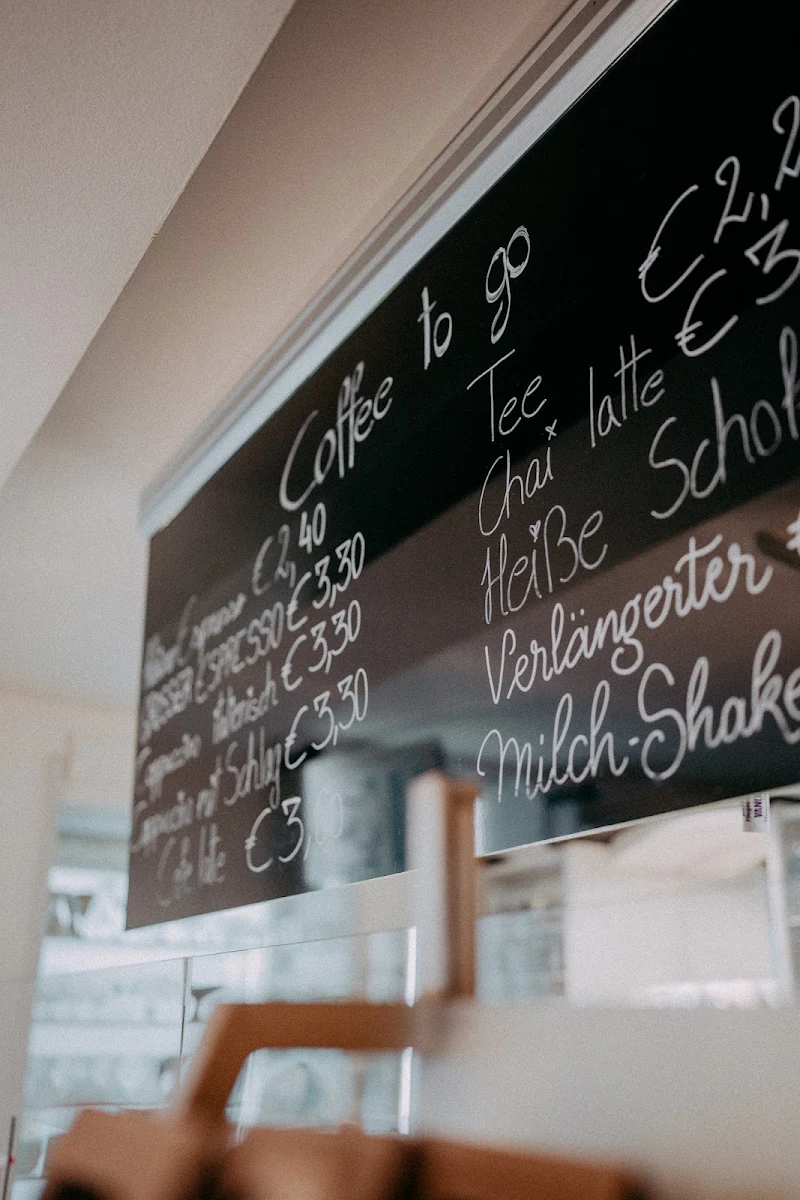 Coffee to go
Espresso €2,40
GROSSER ESPRESSO €3,30
Cappuccino italienisch €3,30
Cappuccino mit Schlag €3,30
Cafe latte €3,
Tee €2,2
Chai latte €3
Heiße Schok
Verlängerter €
Milch-Shake